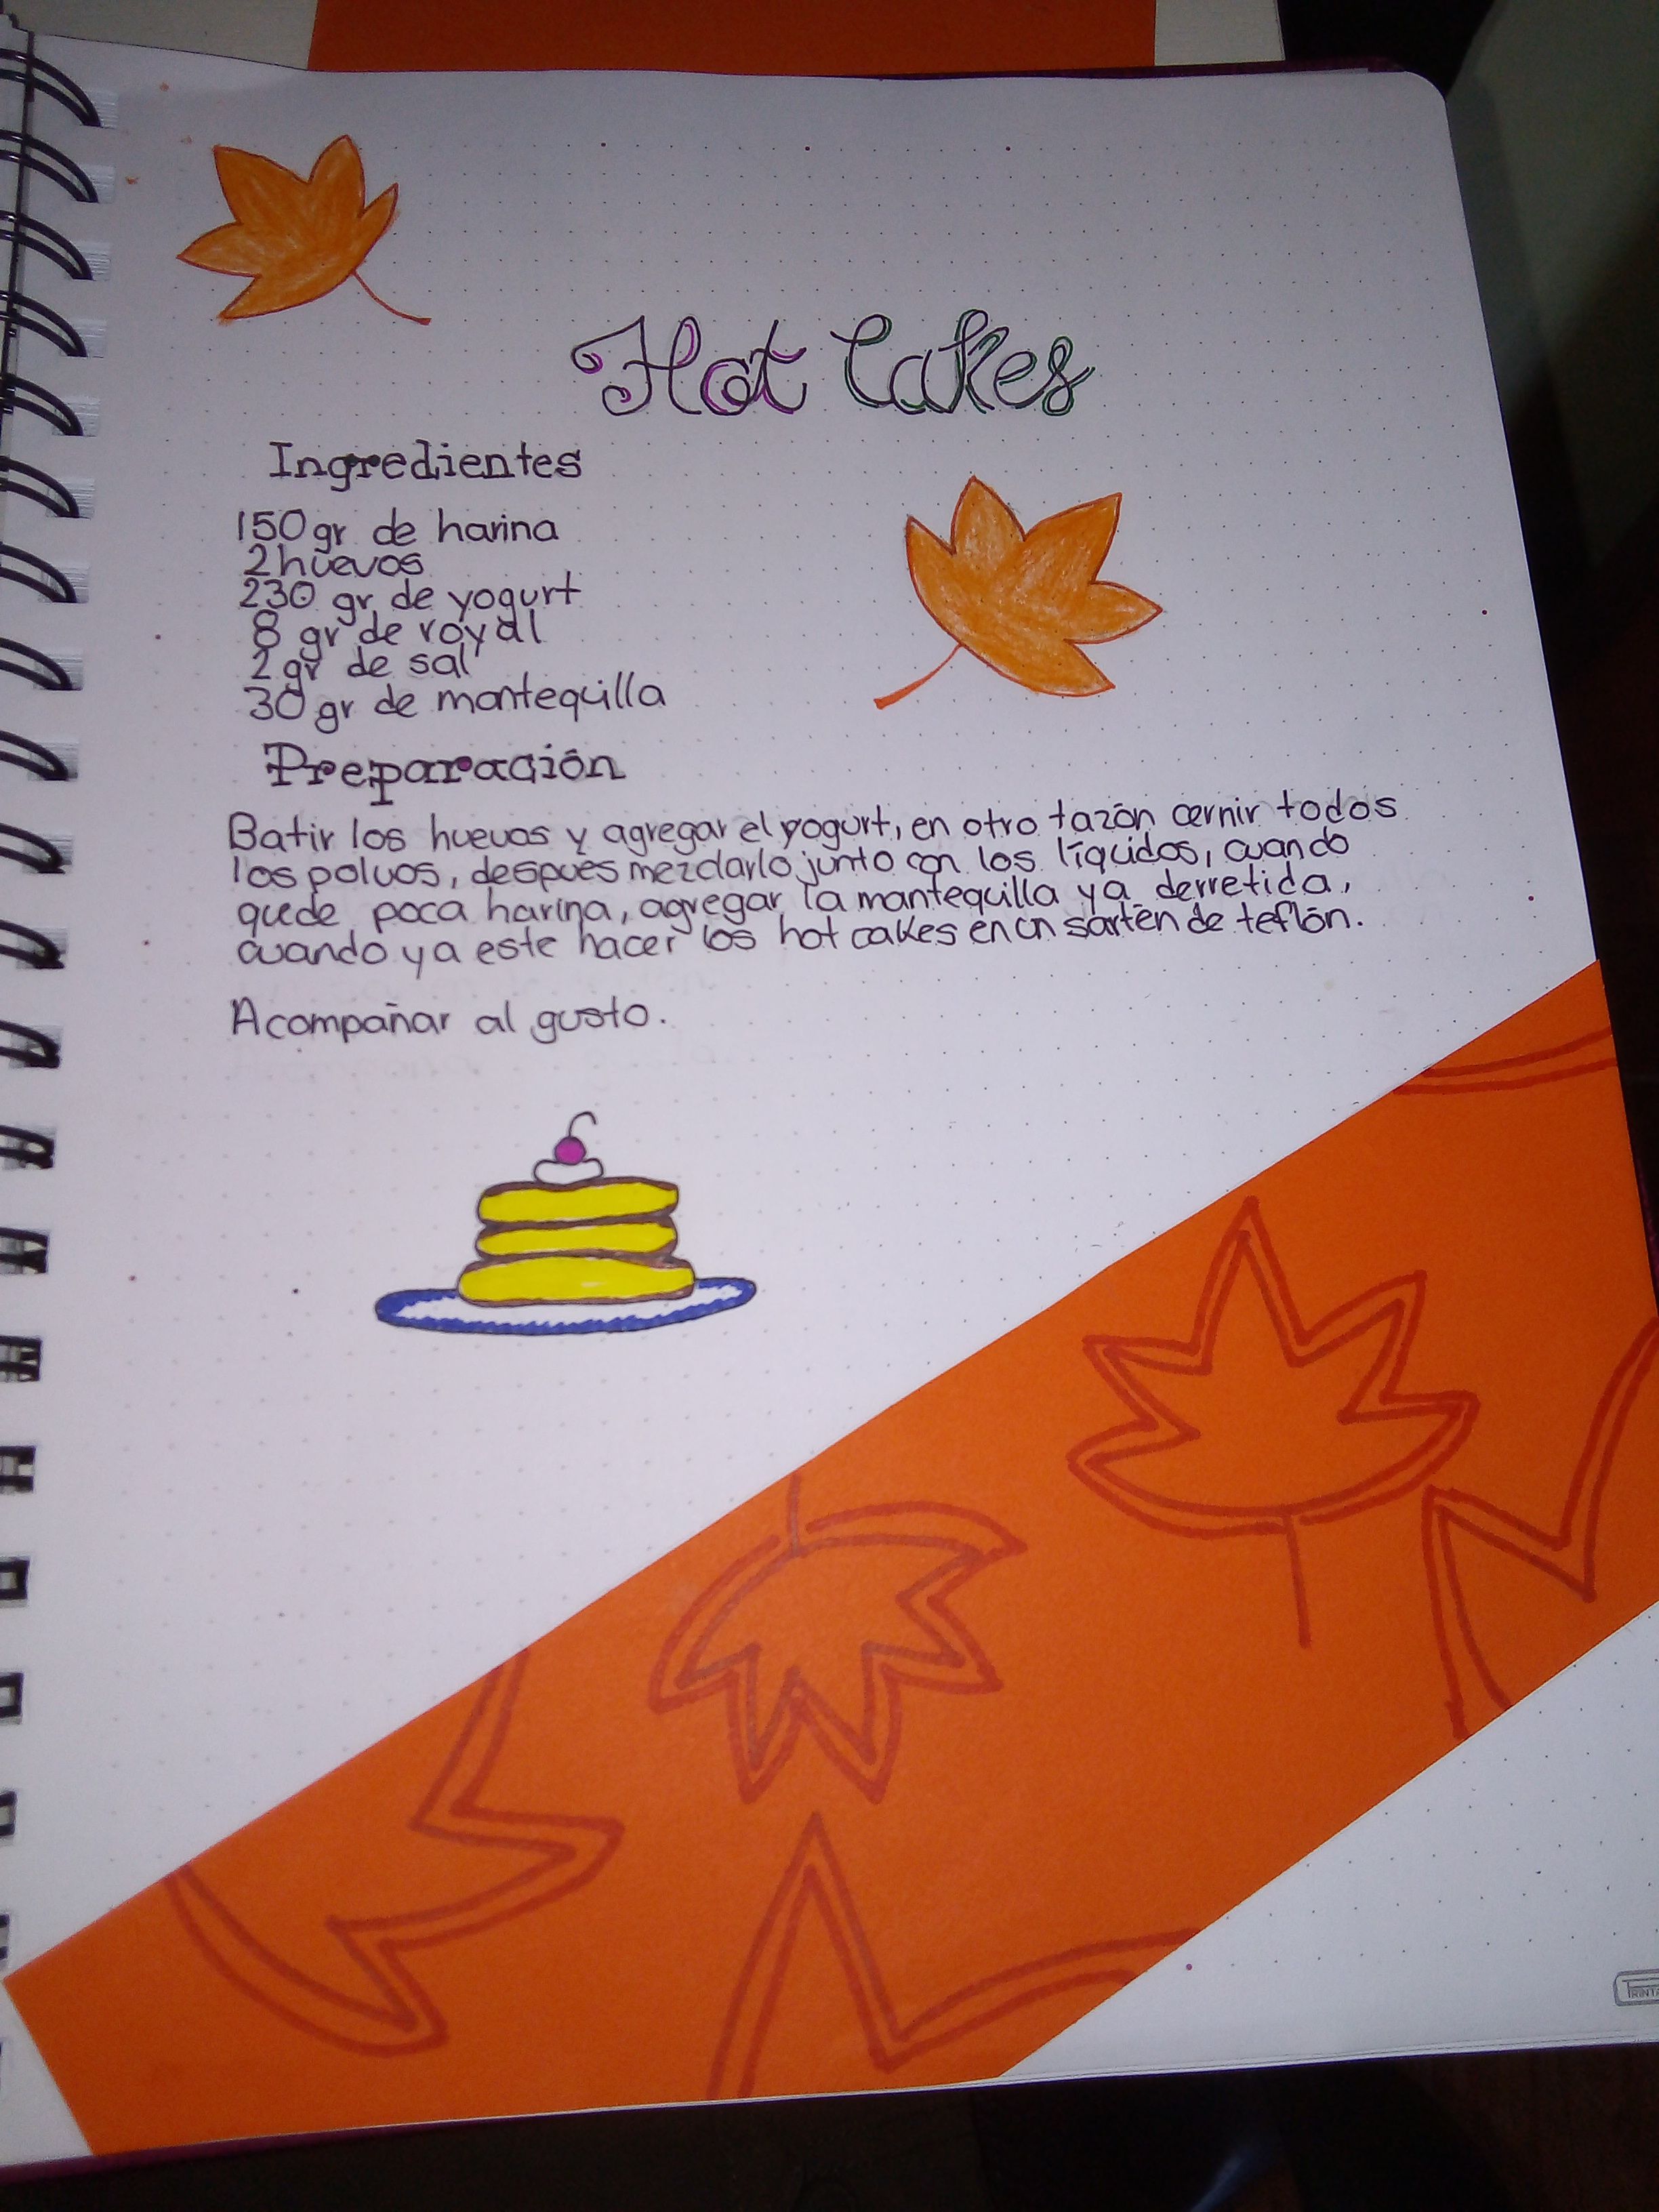 Hot Cakes
Ingredientes
150 gr de harina
2 huevos
230 gr de yogurt
8 gr de royal
2 gr de sal
30 gr de mantequilla
Preparación
Batir los huevos y agregar el yogurt, en otro tazón cernir todos
los polvos, después mezclarlo junto con los líquidos, cuando
quede poca harina, agregar la mantequilla ya derretida,
cuando ya este hacer los hot cakes en un sartén de teflón.
Acompañar al gusto.